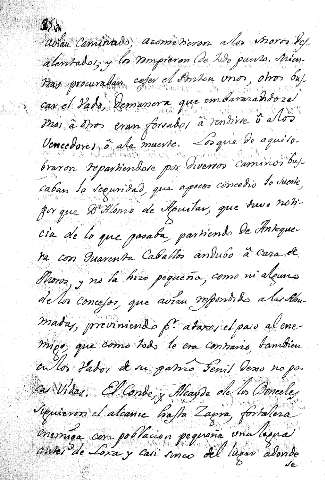 avian caminado, acometieron a los Moros des
alentados, y los rompieron de todo punto. Mien
tras procuraban coger el Puente unos, otros bus
car el Vado, demanera que embarazandose
unos á otros eran forsados á rendirse ó á los
Vencedores, ó ala muerte. Los que de aqui so
braron repartiendose por diversos caminos bus
caban la seguridad, que á pocos concedio la suerte
por que Dn. Alonso de Aguilar, que tuvo noti
cia de lo que pasaba partiendo de Anteque
ra con quarenta Caballos andubo á caza de
Moros, y no la hizo pequeña, como ni alguno
de los concejos, que avian respondido a las Ahu
madas, previniendo pa. atajar el paso al ene
migo, que como todo le era contrario, tambien
en los Vados de su patrio Genil dexo no po
cas Vidas. El Conde, y Alcayde de los Donceles
siguieron el alcance hasta Zagra, fortaleza
enemiga con poblacion pequeña una legua
antes de Loxa y casi cinco del lugar adonde
se